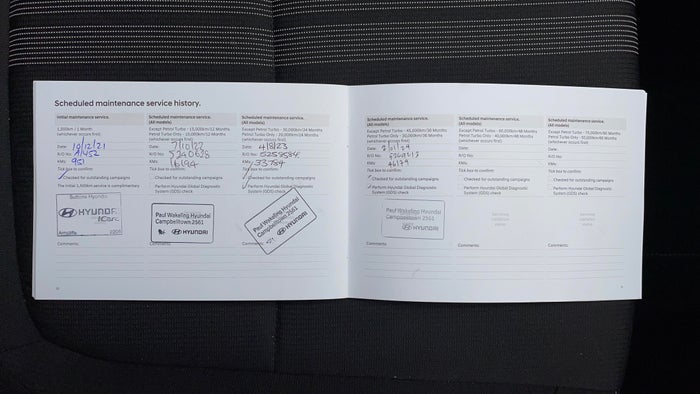 Scheduled maintenance service history.
Initial maintenance service.
1,500km / 1 Month
(whichever occurs first)
Date: 10/12/21
R/O No: A1452
KMs: 951
Tick box to confirm:
Checked for outstanding campaigns
The initial 1,500km service is complimentary
Suttons Hyundai
HYUNDAI
Arncliffe 2205
Comments:
Scheduled maintenance service.
(All models)
Except Petrol Turbo - 15,000km/12 Months
Petrol Turbo Only - 10,000km/12 Months
(whichever occurs first)
Date: 7/10/22
R/O No: 5240628
KMs: 16194
Tick box to confirm:
Checked for outstanding campaigns
Perform Hyundai Global Diagnostic
System (GDS) check
Paul Wakeling Hyundai
Campbelltown 2561
HYUNDAI
Comments:
Scheduled maintenance service.
(All models)
Except Petrol Turbo - 30,000km/24 Months
Petrol Turbo Only - 20,000km/24 Months
(whichever occurs first)
Date: 4/8/23
R/O No: 5259584
KMs: 33784
Tick box to confirm:
Checked for outstanding campaigns
Perform Hyundai Global Diagnostic
System (GDS) check
Paul Wakeling Hyundai
Campbelltown 2561
HYUNDAI
Comments:
Scheduled maintenance service.
(All models)
Except Petrol Turbo - 45,000km/36 Months
Petrol Turbo Only - 30,000km/36 Months
(whichever occurs first)
Date:
R/O No:
KMs: 46179
Tick box to confirm:
Checked for outstanding campaigns
Perform Hyundai Global Diagnostic
System (GDS) check
Paul Wakeling Hyundai
Campbelltown 2561
HYUNDAI
Comments:
Scheduled maintenance service.
(All models)
Except Petrol Turbo - 60,000km/48 Months
Petrol Turbo Only - 40,000km/48 Months
(whichever occurs first)
Date:
R/O No:
KMs:
Tick box to confirm:
Checked for outstanding campaigns
Perform Hyundai Global Diagnostic
System (GDS) check
Comments:
Scheduled maintenance service.
(All models)
Except Petrol Turbo - 75,000km/60 Months
Petrol Turbo Only - 50,000km/60 Months
(whichever occurs first)
Date:
R/O No:
KMs:
Tick box to confirm:
Checked for outstanding campaigns
Perform Hyundai Global Diagnostic
System (GDS) check
Comments: